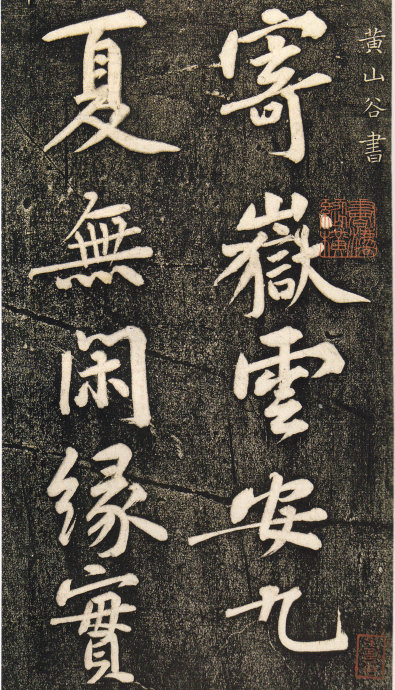 黄山谷書
寄嶽雲安九
夏無閑緣實